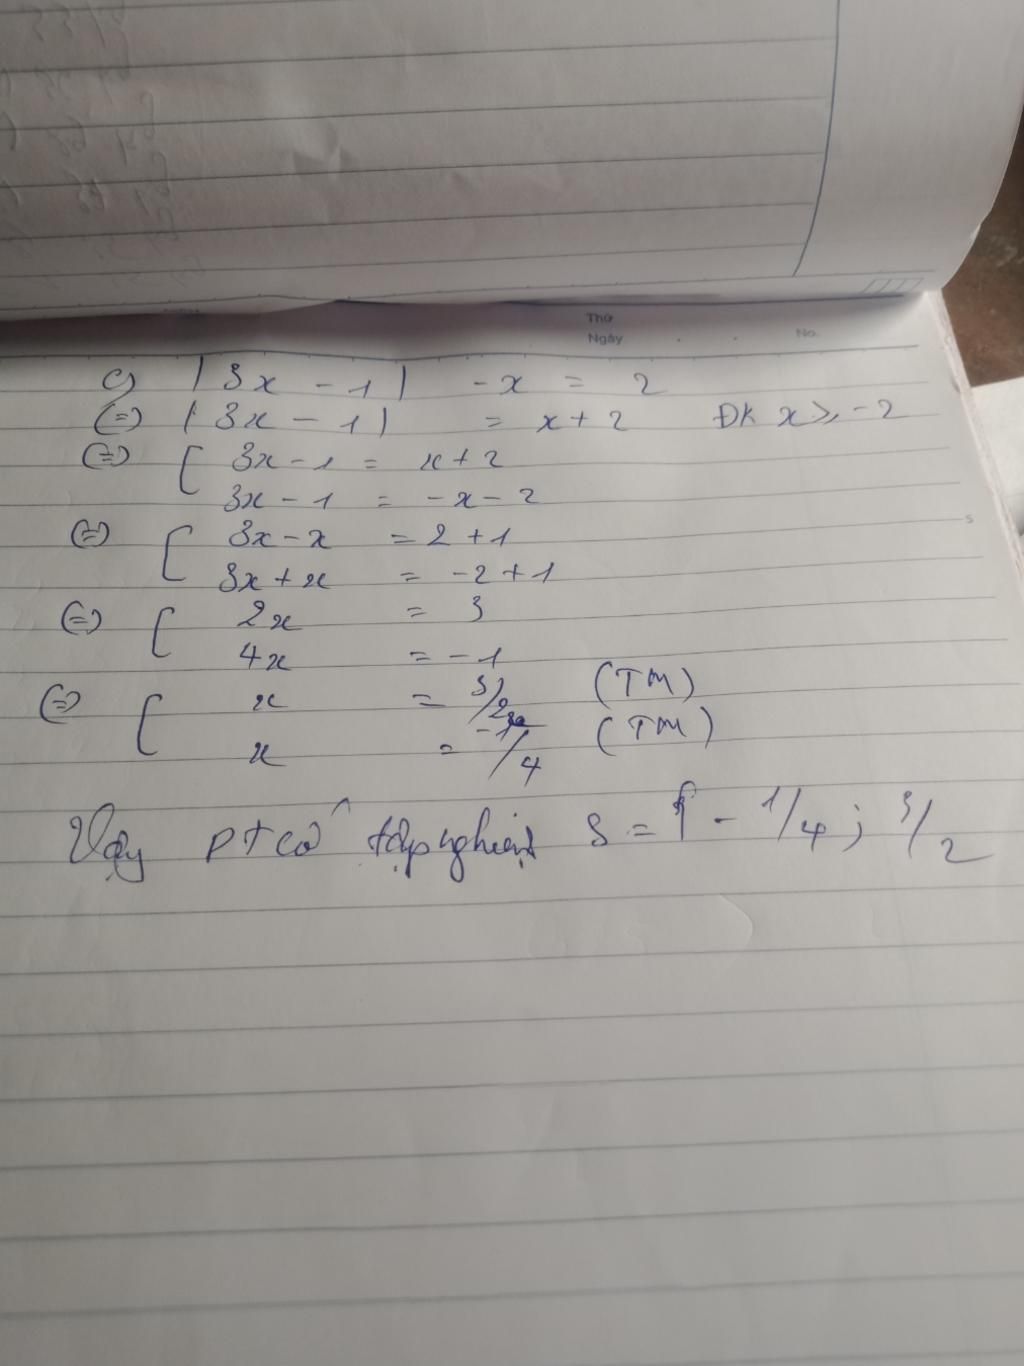 Thứ
Ngày
No.
c) |3x - 1| - x = 2
(=) |3x - 1| = x + 2 ĐK x ≥ -2
(=) [ 3x - 1 = x + 2
3x - 1 = -x - 2
(=) [ 3x - x = 2 + 1
3x + x = -2 + 1
5
(=) [ 2x = 3
4x = -1
(=) [ x = 3/2 (TM)
x = -1/4 (TM)
Vậy PT có tập nghiệm S = { -1/4; 3/2